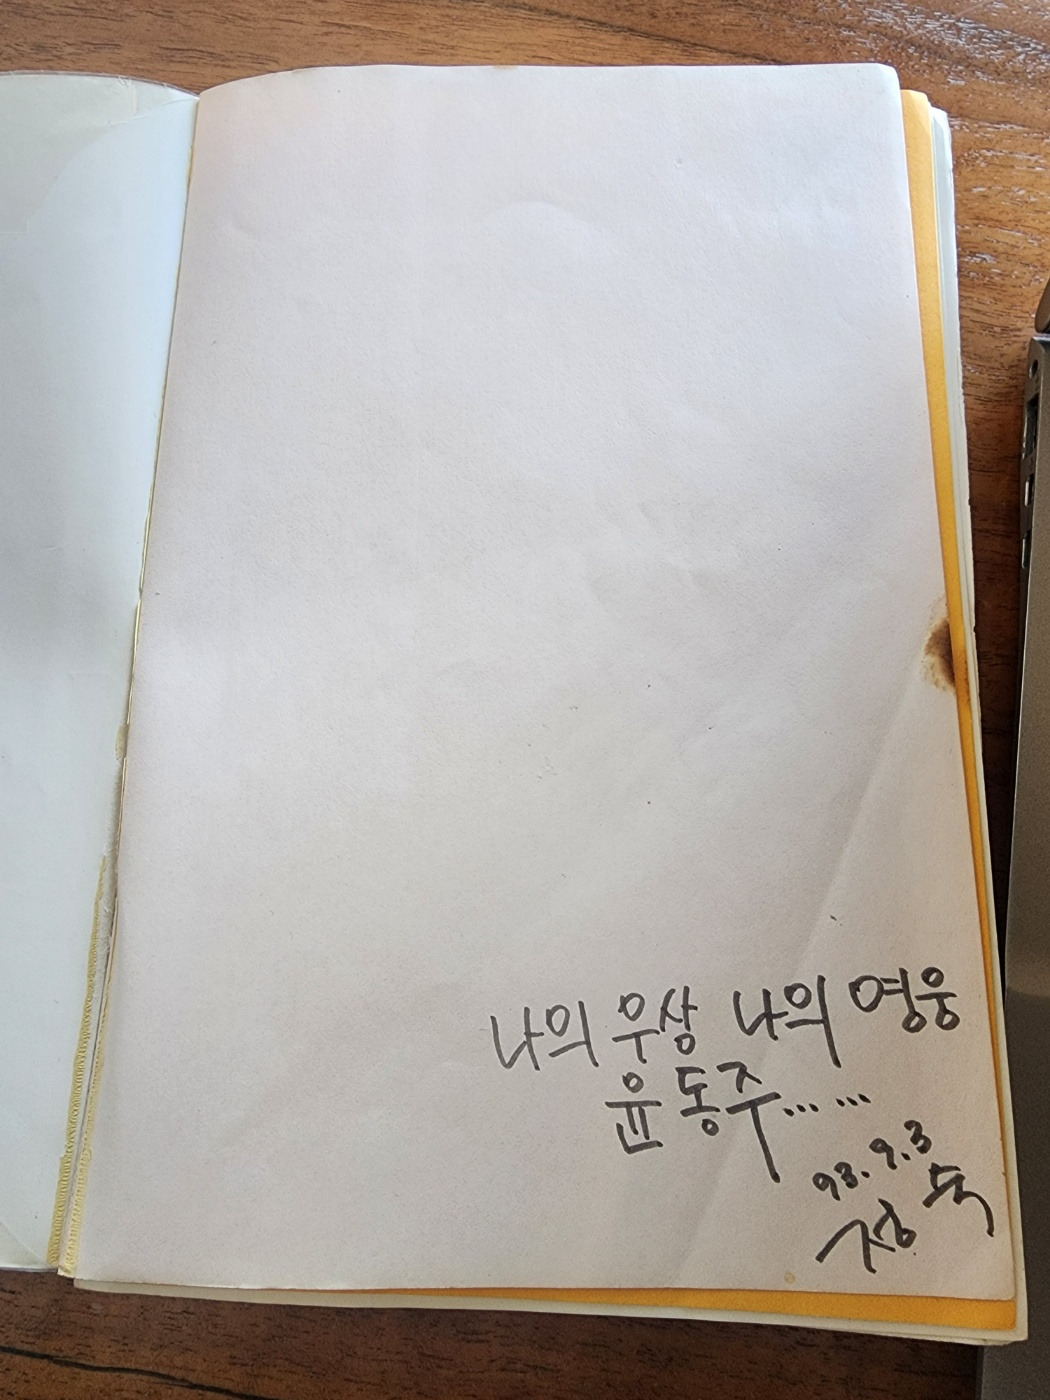 나의 우상 나의 영웅
윤동주... ...
93. 9. 3